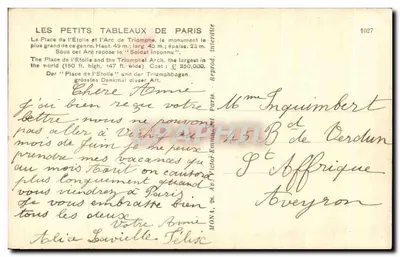 LES PETITS TABLEAUX DE PARIS
La Place de l'Etoile et l'Arc de Triomphe, le monument le
plus grand de ce genre. Haut. 45 m; larg. 45 m; épaiss. 22 m.
Sous cet Arc repose le "Soldat Inconnu".
The Place de l'Etoile and the Triumphal Arch, the largest in
the world (150 ft. high, 147 ft. wide). Cost: £ 350,000.
Der "Place de l'Etoile" und der Triumphbogen
grösstes Denkmal dieser Art.
1027
Chère Amie
j'ai bien reçu votre
lettre nous ne pouvons
pas aller à Vichy au
mois de Juin je ne peux
prendre mes vacances qu'
au mois Aout on causera
plus longuement quand
vous viendrez à Paris
Je vous embrasse bien
tous les deux
Votre Amie
Alia Lavielle Félix
Reprod. interdite
Paris
Mme Inquimbert
25 Bd de Verdun
St Affrique
Aveyron